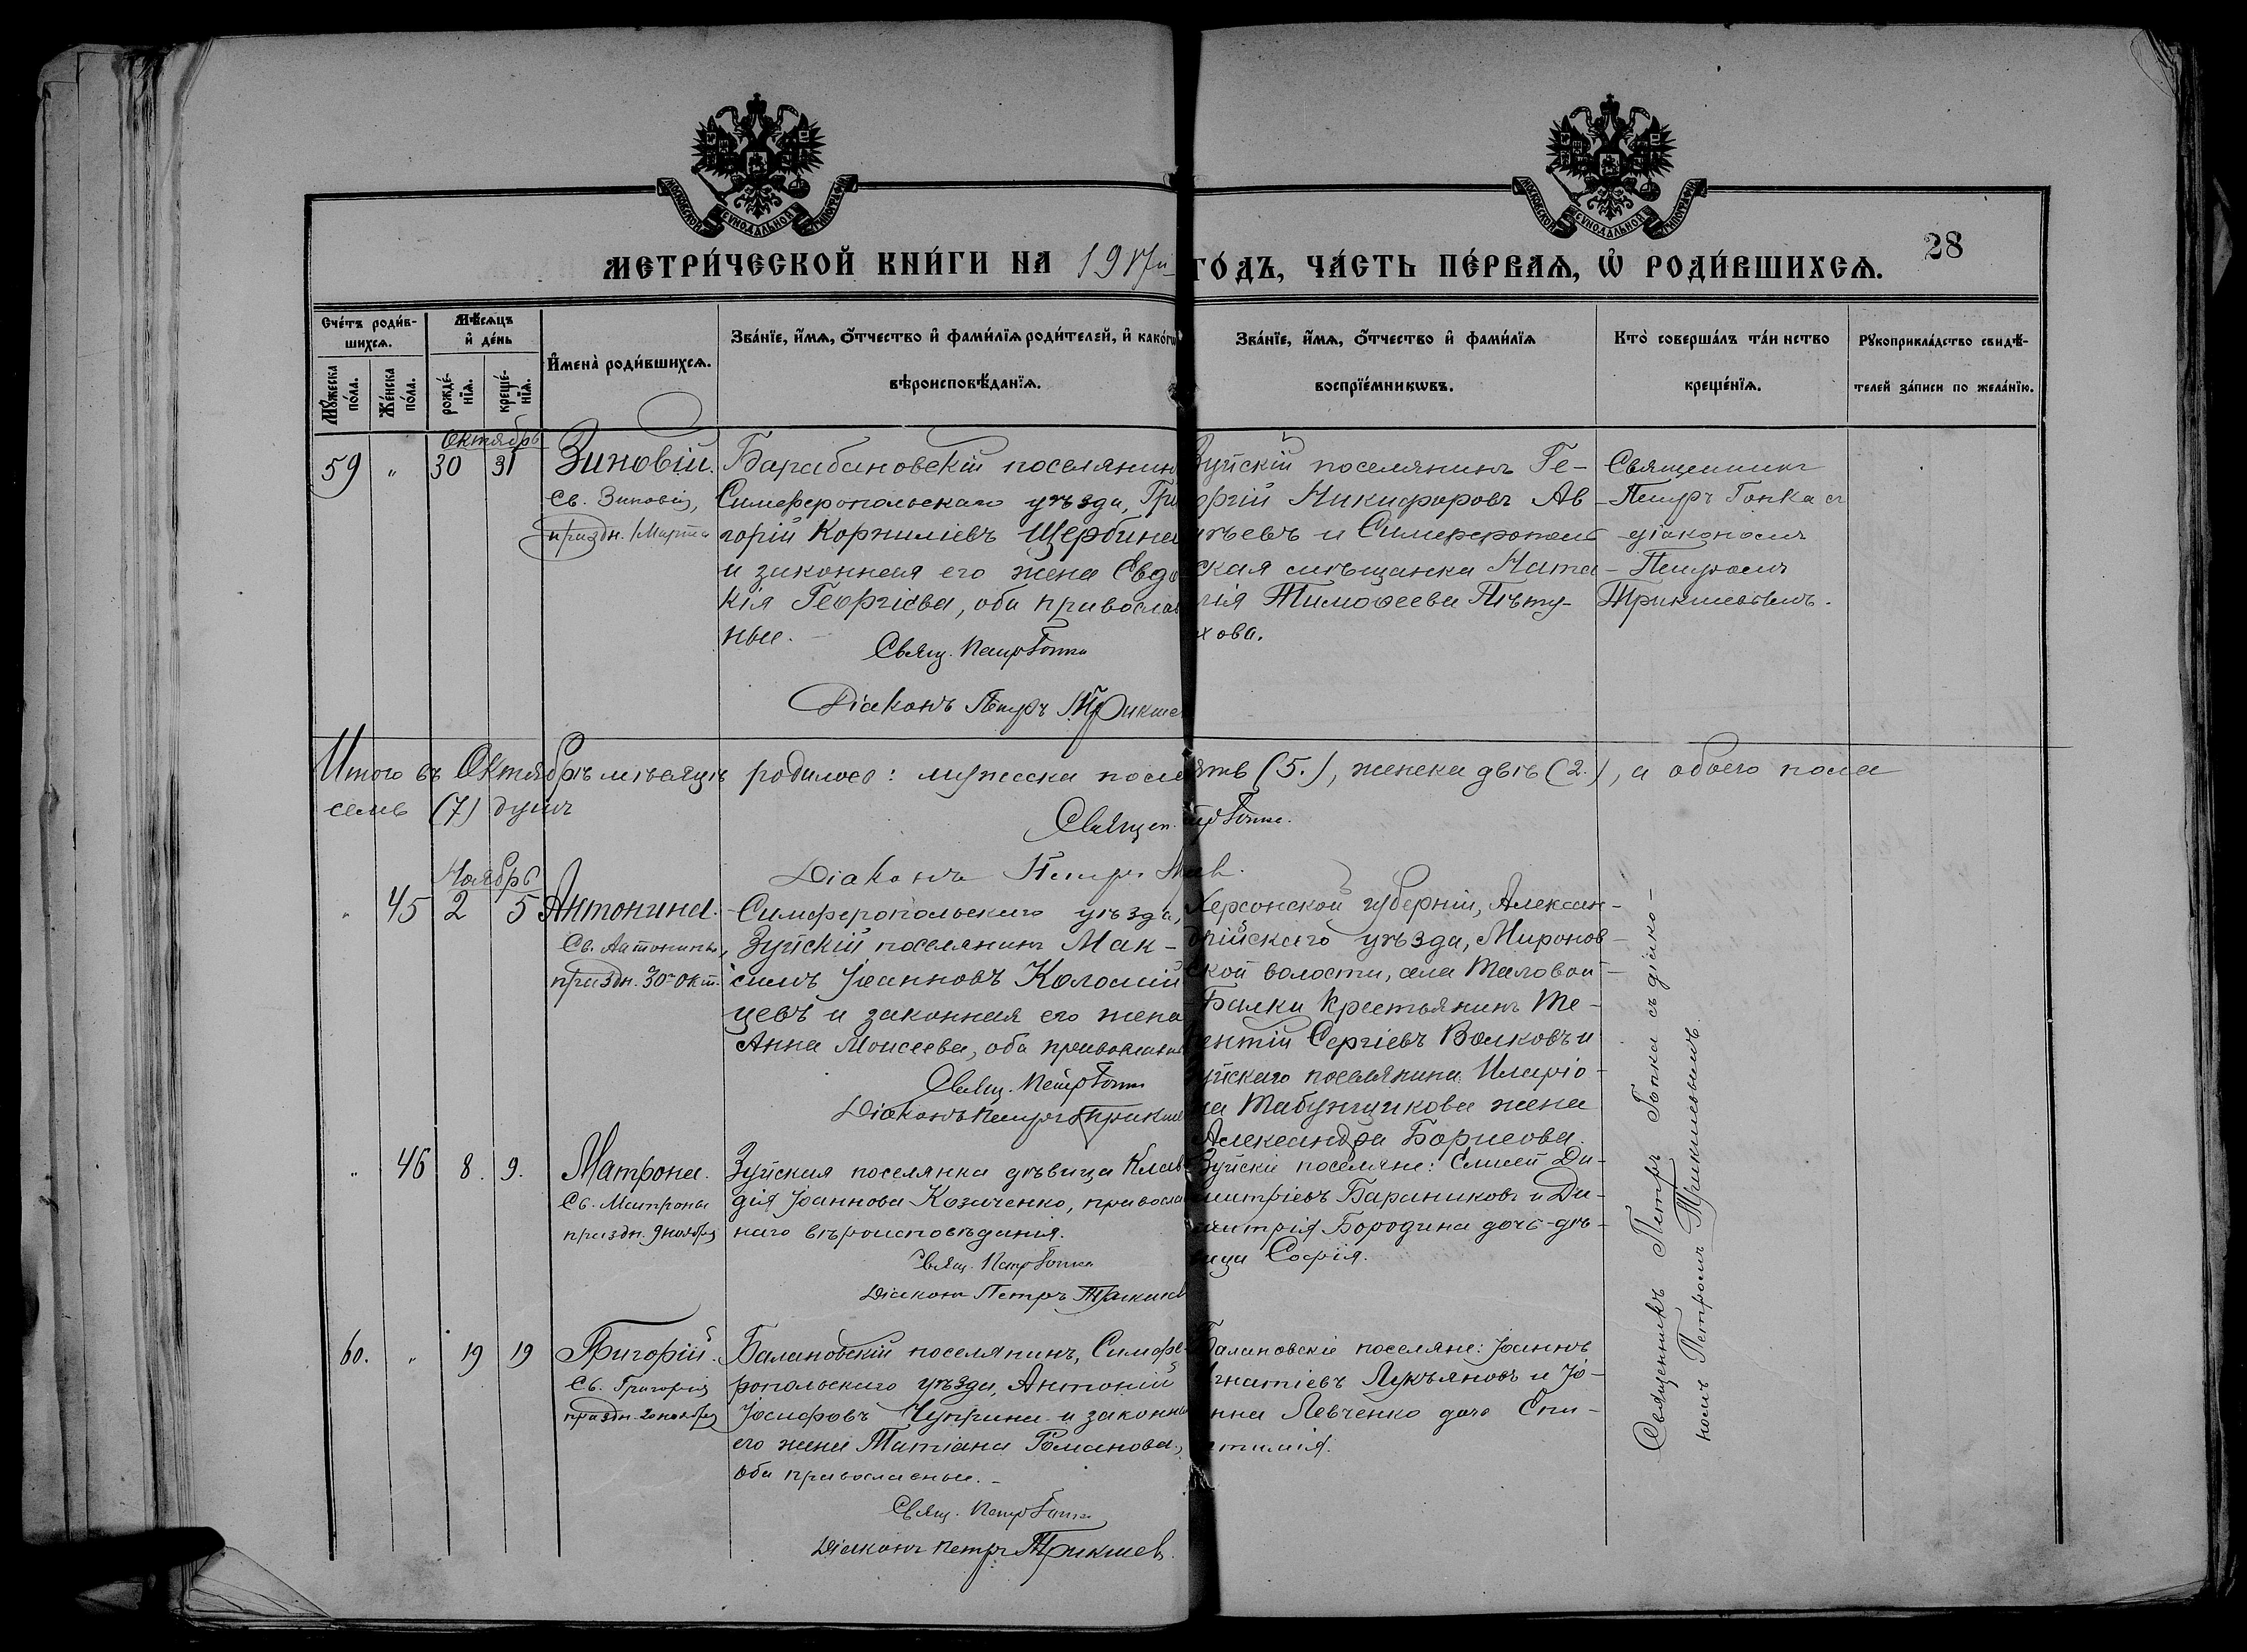 МОСКОВСКОЙ СѴНОДАЛЬНОЙ ТИПОГРАФІИ
МОСКОВСКОЙ СѴНОДАЛЬНОЙ ТИПОГРАФІИ
28
МЕТРИ́ЧЕСКОЙ КНИ́ГИ НА 1917й ГО́ДЪ, ЧА́СТЬ ПЕ́РВАѦ, Ѡ҆ РОДИ́ВШИХСѦ.
Сче́тъ роди́в-
шихсѧ.
Мꙋ́жеска по́ла.
Же́нска по́ла.
Мѣ́сѧцъ
и҆ де́нь
рожде́-
нїѧ.
креще́-
нїѧ.
И҆мена̀ роди́вшихсѧ.
Зва́нїе, и҆́мѧ, ѻ҆́тчество и҆ фами́лїѧ роди́телей, и҆ како́гѡ
вѣроисповѣ́данїѧ.
Зва́нїе, и҆́мѧ, ѻ҆́тчество и҆ фами́лїѧ
воспрїе́мникѡвъ.
Кто̀ соверша́лъ та́инство
креще́нїѧ.
Рꙋкоприкла́дство свидѣ́-
телей за́писи по жела́нїю.
Октябрь
59 " 30 31
Зиновій.
Св. Зиновія,
праздн.
Барабановскій поселянин
Симферопольскаго уѣзда, Гри
горій Корниліевъ Щербина
и законная его жена Евдо
кія Георгіева, оба православ
ные.
Свящ. Петръ Гопка
Діаконъ Петръ
Зуйскій поселянинъ Ге-
оргій Никифоровъ Ав-
ѣевъ и Симферополь
ская мѣщанка Ната-
лія Тимоѳеева Пѣту-
хова.
Священникъ
Петръ Гопка съ
діакономъ
Петромъ
Итого въ Октябрѣ мѣсяцѣ родилось: мужеска пола пять (5.), женска двѣ (2.), а обоего пола
семь (7) душъ
Священ. Петръ Гопка.
Діаконъ Петръ
Ноябрь
" 45 2 5
Антонина.
Св. Антонины,
праздн. 30го Окт.
Симферопольскаго уѣзда,
Зуйскій поселянинъ Мак-
симъ Іоанновъ Коломій
цевъ и законная его жена
Анна Моисеева, оба православн
Свящ. Петръ Гопка
Діаконъ Петръ
Херсонской губерніи, Алексан-
дрійскаго уѣзда, Миронов-
ской волости, села Маловой
Балки крестьянинъ Те-
рентій Сергіевъ Волковъ и
Зуйскаго поселянина Иларіо-
на Табунщикова жена
Александра Борисова.
" 46 8. 9.
Матрона.
Св. Матроны
праздн. 9 ноября
Зуйская поселянка дѣвица Клав
дія Іоаннова Козаченко, православ
наго вѣроисповѣданія.
Свящ. Петръ Гопка
Діаконъ Петръ
Зуйскіе поселяне: Елисей Ди-
митріевъ Бараниковъ и Ди-
митрія Бородина дочь-дѣ-
вица Софія.
60. " 19 19
Григорій.
Св. Григорія
праздн. 20 ноября
Балановскій поселянинъ, Симфе-
ропольскаго уѣзда, Антоній
Іосифовъ Чуприна и законна
его жена Татіана Романова,
оба православные.
Свящ. Петръ Гопка
Діаконъ Петръ
Балановскіе поселяне: Іоаннъ
Игнатіевъ Лукьяновъ и Іо-
анна Левченко дочь
Священникъ Петръ Гопка съ діако-
номъ Петромъ